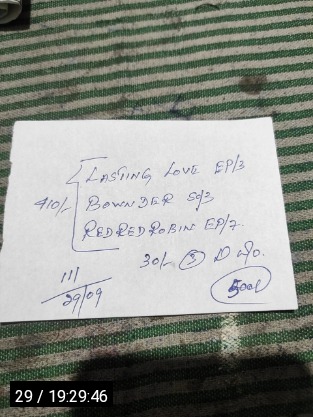 LASTING LOVE EP/3
410/- BOWNDER 50/3
REDREDROBIN EP/7.
30/- ③ D w/o.
111
29/09
500/
29 / 19:29:46